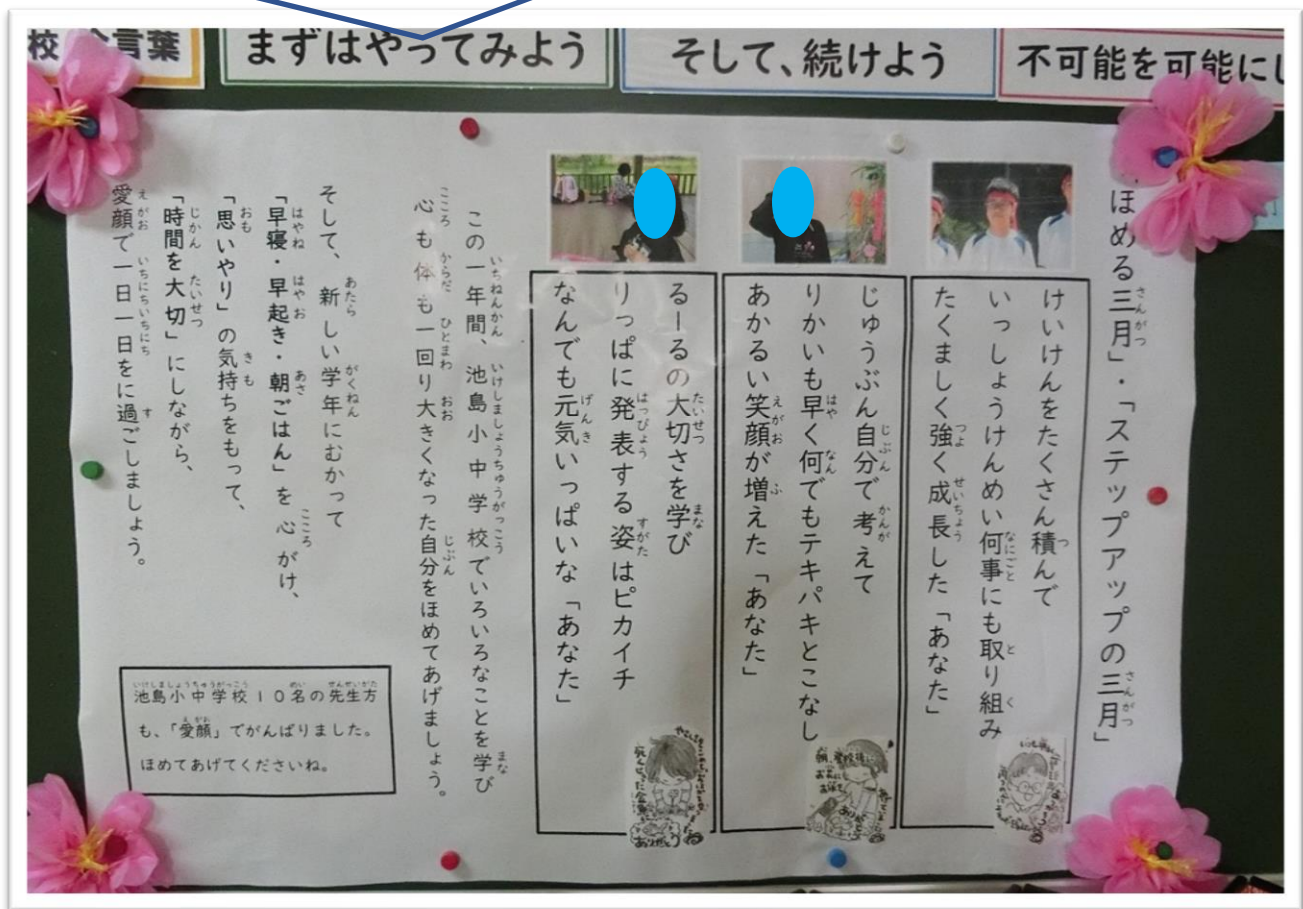 校 言葉
まずはやってみよう
そして、続けよう
不可能を可能にし
ほめる三月」・「ステップアップの三月」
けいけんをたくさん積んで
いっしょうけんめい何事にも取り組み
たくましく強く成長した「あなた」
じゅうぶん自分で考えて
りかいも早く何でもテキパキとこなし
あかるい笑顔が増えた「あなた」
るーるの大切さを学び
りっぱに発表する姿はピカイチ
なんでも元気いっぱいな「あなた」
この一年間、池島小中学校でいろいろなことを学び
心も体も一回り大きくなった自分をほめてあげましょう。
そして、新しい学年にむかって
「早寝・早起き・朝ごはん」を心がけ、
「思いやり」の気持ちをもって、
「時間を大切」にしながら、
愛顔で一日一日をに過ごしましょう。
池島小中学校10名の先生方
も、「愛顔」でがんばりました。
ほめてあげてくださいね。